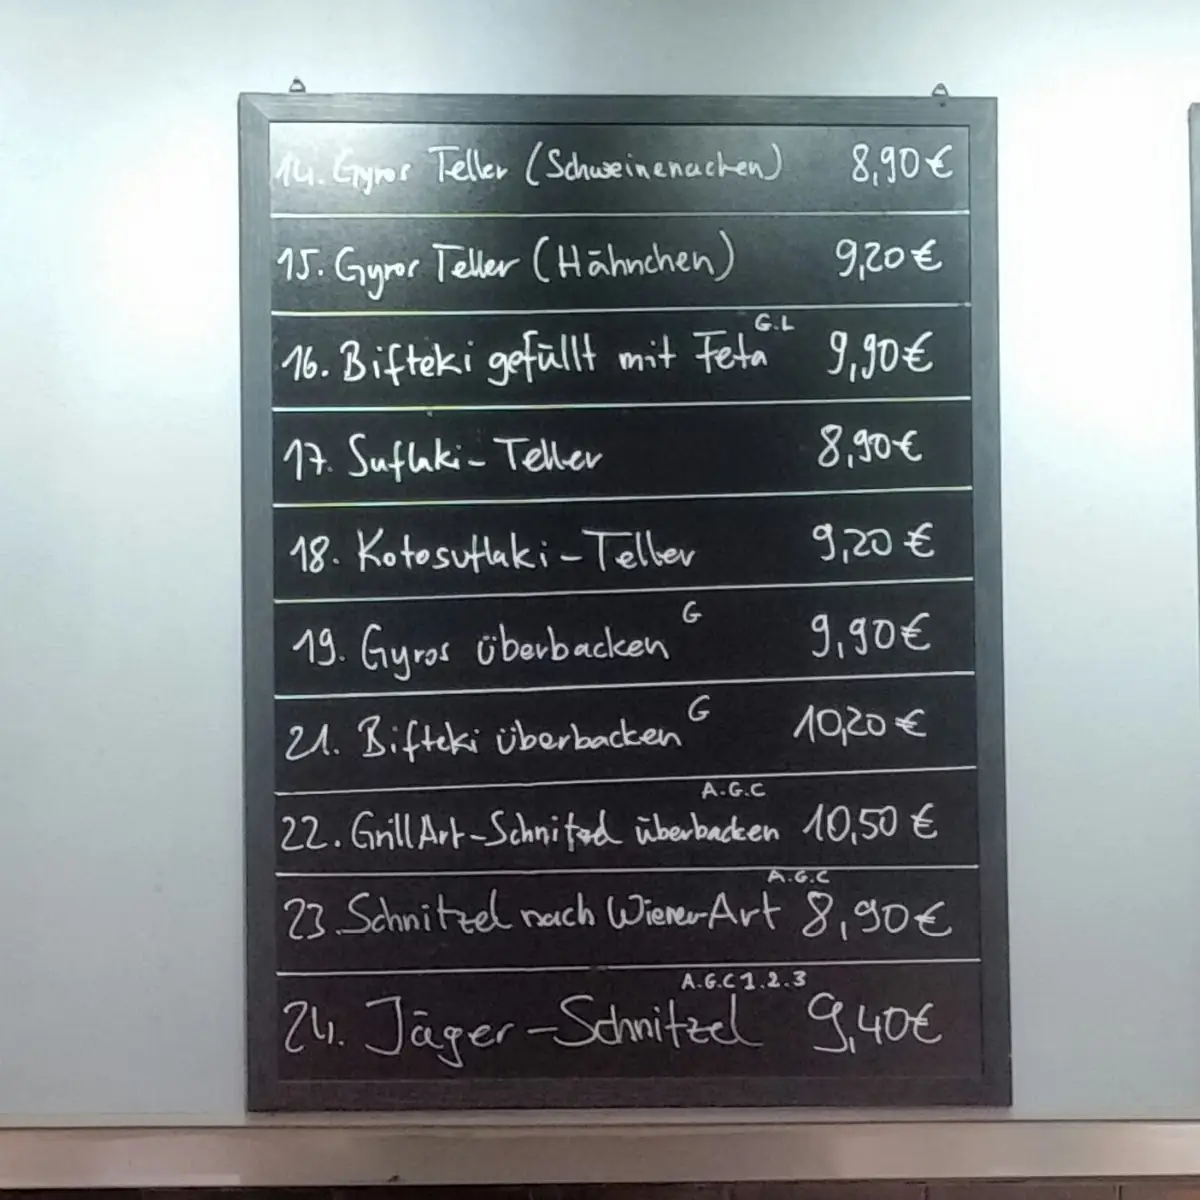 14. Gyros Teller (Schweinenacken) 8,90 €
15. Gyros Teller (Hähnchen) 9,20 €
16. Bifteki gefüllt mit Feta G.L 9,90 €
17. Suflaki-Teller 8,90 €
18. Kotosuflaki-Teller 9,20 €
19. Gyros überbacken G 9,90 €
21. Bifteki überbacken G 10,20 €
22. Grill Art-Schnitzel überbacken A.G.C 10,50 €
23. Schnitzel nach Wiener Art A.G.C 8,90 €
24. Jäger-Schnitzel A.G.C 1.2.3 9,40 €